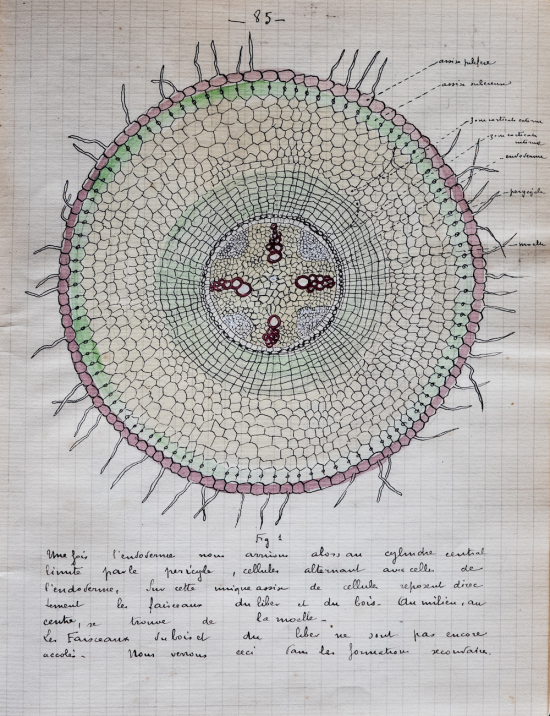 — 85 —
assise pilifère
assise subéreuse
zone corticale externe
zone corticale
interne
endoderme
péricycle
moelle
Fig 1
Une fois l'endoderme nous arrivons alors au cylindre central
limité par le péricycle, cellules alternant avec celles de
l'endoderme. Sur cette unique assise de cellule reposent direc
tement les faisceaux du liber et du bois. Au milieu, au
centre, se trouve de la moelle.
Les Faisceaux du bois et du liber ne sont pas encore
accolés. Nous verrons ceci dans les formations secondaires.